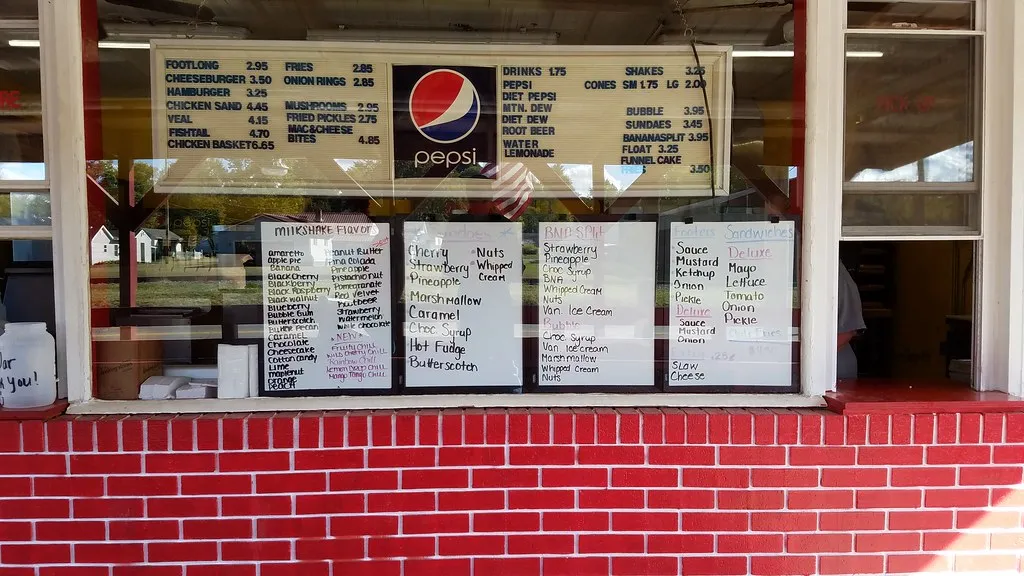 FOOTLONG 2.95
CHEESEBURGER 3.50
HAMBURGER 3.25
CHICKEN SAND 4.45
VEAL 4.15
FISHTAIL 4.70
CHICKEN BASKET 6.65
FRIES 2.85
ONION RINGS 2.85
MUSHROOMS 2.95
FRIED PICKLES 2.75
MAC&CHEESE
BITES 4.85
pepsi
DRINKS 1.75
PEPSI
DIET PEPSI
MTN. DEW
DIET DEW
ROOT BEER
WATER
LEMONADE
SHAKES 3.25
CONES SM 1.75 LG 2.00
BUBBLE 3.95
SUNDAES 3.45
BANANASPLIT 3.95
FLOAT 3.25
FUNNEL CAKE
FRIES 3.50
MILKSHAKE FLAVOR
Amaretto
Apple Pie
Banana
Black Cherry
Blackberry
Black Raspberry
Black walnut
Blueberry
Bubble Gum
Butterscotch
Butter Pecan
Caramel
Chocolate
Cheesecake
Cotton candy
Lime
Maplenut
Orange
Peach
Peanut Butter
Pina Colada
Pineapple
Pistachio nut
Pomegranate
Red Velvet
Rootbeer
Strawberry
Watermelon
White chocolate
*NEW*
Fruity Chill
Wild Cherry Chill
Rainbow Chill
Lemon Drop Chill
Mango Tango Chill
Cherry
Strawberry
Pineapple
Marshmallow
Caramel
Choc Syrup
Hot Fudge
Butterscotch
Nuts
Whipped
Cream
BNA Split
Strawberry
Pineapple
Choc Syrup
BNA
Whipped Cream
Nuts
Van. Ice Cream
Bubble
Choc Syrup
Van. Ice cream
Marshmallow
Whipped Cream
Nuts
Footers
Sauce
Mustard
Ketchup
Onion
Pickle
Deluxe
Sauce
Mustard
Onion
Slaw
Cheese
Sandwiches
Deluxe
Mayo
Lettuce
Tomato
Onion
Pickle
you!